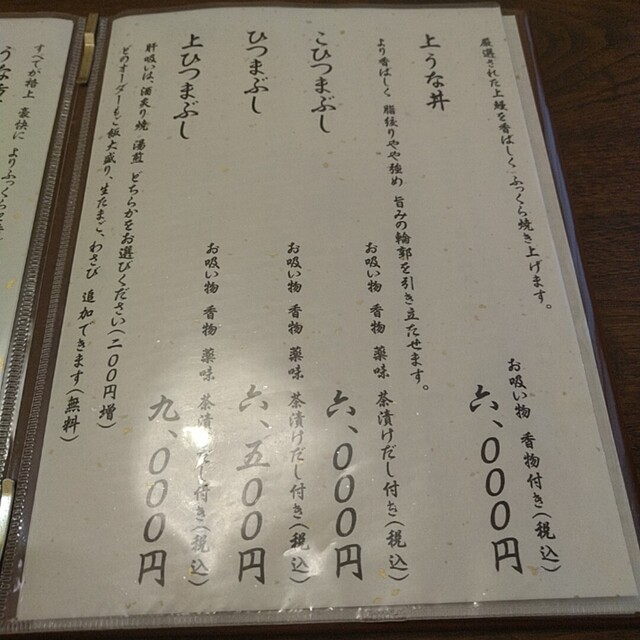 厳選された上鰻を香ばしく ふっくら焼き上げます。
お吸い物 香物付き(税込)
上うな丼
六、〇〇〇円
より香ばしく 脂縁りやや強め 旨みの輪郭を引き立たせます。
お吸い物 香物 薬味 茶漬けだし付き(税込)
こひつまぶし
六、〇〇〇円
お吸い物 香物 薬味 茶漬けだし付き(税込)
ひつまぶし
六、五〇〇円
お吸い物 香物 薬味 茶漬けだし付き(税込)
上ひつまぶし
九、〇〇〇円
肝吸いは、酒炙り焼 湯煎 どちらかをお選びください(二〇〇円増)
どのオーダーもご飯大盛り、生たまご、わさび 追加できます(無料)
すべてが格上 豪快に よりふっくら
うな